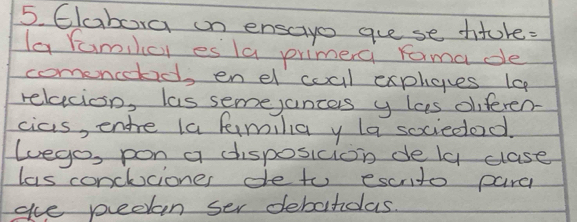 5. Elabora un ensayo que se titule=
la familia es la primera foma de
comunidad, en el cual expliques la
relación, las semejanzas y las diferen-
cias, entre la familia y la sociedad.
Luego, pon a disposición de la clase
las conclusiones de tu escrito para
que puedan ser debatidas.